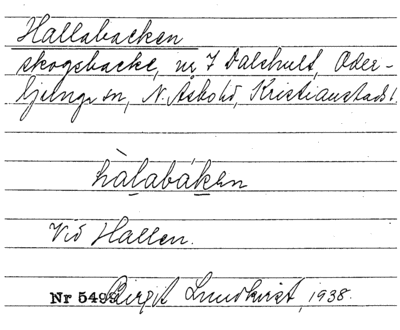 Hallabacken
skogsbacke, nr 7 Dalshult, Oder-
ljunga sn, N. Åsbo hd, Kristianstads l.
hàlabáken
Vid Hallen.
Nr 5499 Birgit Lundkvist, 1938.